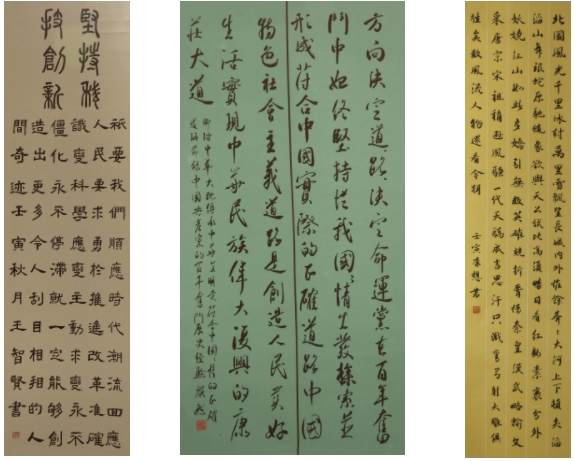 堅持科
技創新
祇要我們順應時代潮流回應
人民要求勇於推進改革准確
識變科學應變主動求變永不
僵化永不停滯就一定能夠創
造出更多令人刮目相看的人
間奇迹壬寅秋月王智賢書
方向決定道路決定命運黨在百年奮
鬥中始終堅持從我國國情出發探索並
形成符合中國實際的正確道路中國
特色社會主義道路是創造人民美好
生活實現中華民族偉大復興的康
莊大道
北國風光千里冰封萬里雪飄望長城內外惟餘莽莽大河上下頓失滔
滔山舞銀蛇原馳蠟象欲與天公試比高須晴日看紅裝素裹分外
妖嬈江山如此多嬌引無數英雄競折腰惜秦皇漢武略輸文
采唐宗宋祖稍遜風騷一代天驕成吉思汗只識彎弓射大雕俱
往矣數風流人物還看今朝
壬寅書